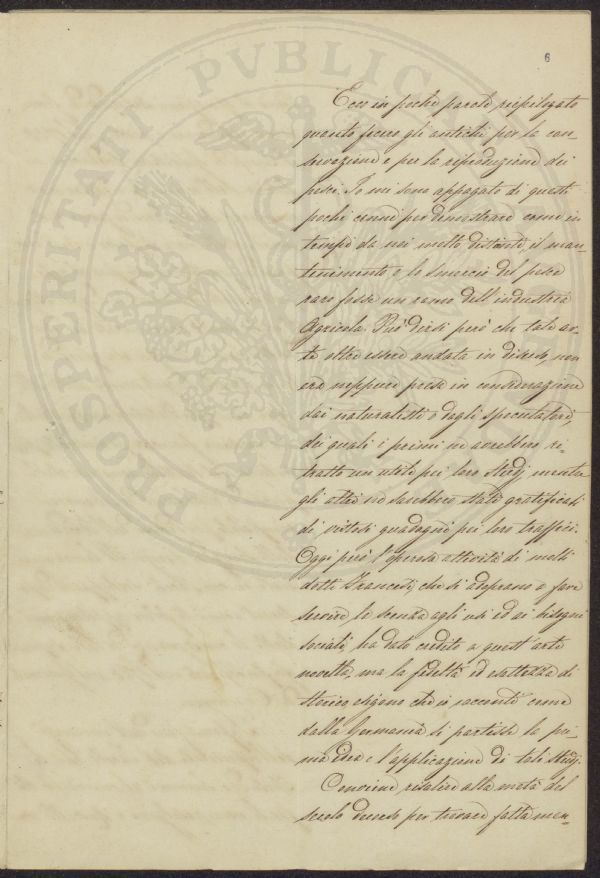 6
Ecco in poche parole riepilogato
quanto fecero gli antichi per la con-
servazione e per la riproduzione dei
pesci. Io mi sono appagato di questi
pochi cenni per dimostrare come in
tempi da noi molto distanti, il man-
tenimento e lo smercio del pesce
raro fosse un ramo dell'industria
Agricola. Può dirsi però che tale ar-
te oltre essere andata in disuso, non
era neppure presa in considerazione
dai naturalisti o dagli speculatori,
dei quali i primi ne avrebbero ri-
tratto un utile pei loro studj, mentre
gli altri ne sarebbero stati gratificati
di vistosi guadagni pei loro traffici.
Oggi però l'operosa attività di molti
dotti Francesi, che si adoprano a fare
servire la scienza agli usi ed ai bisogni
sociali, ha dato credito a quest'arte
novella, ma la fedeltà ed esattezza di
storico esigono che io racconti come
dalla Germania si partisse la pri-
ma idea e l'applicazione di tali studj.
Conviene risalire alla metà del
secolo decorso per trovare fatta men-
PROSPERITATI PVBLICAE